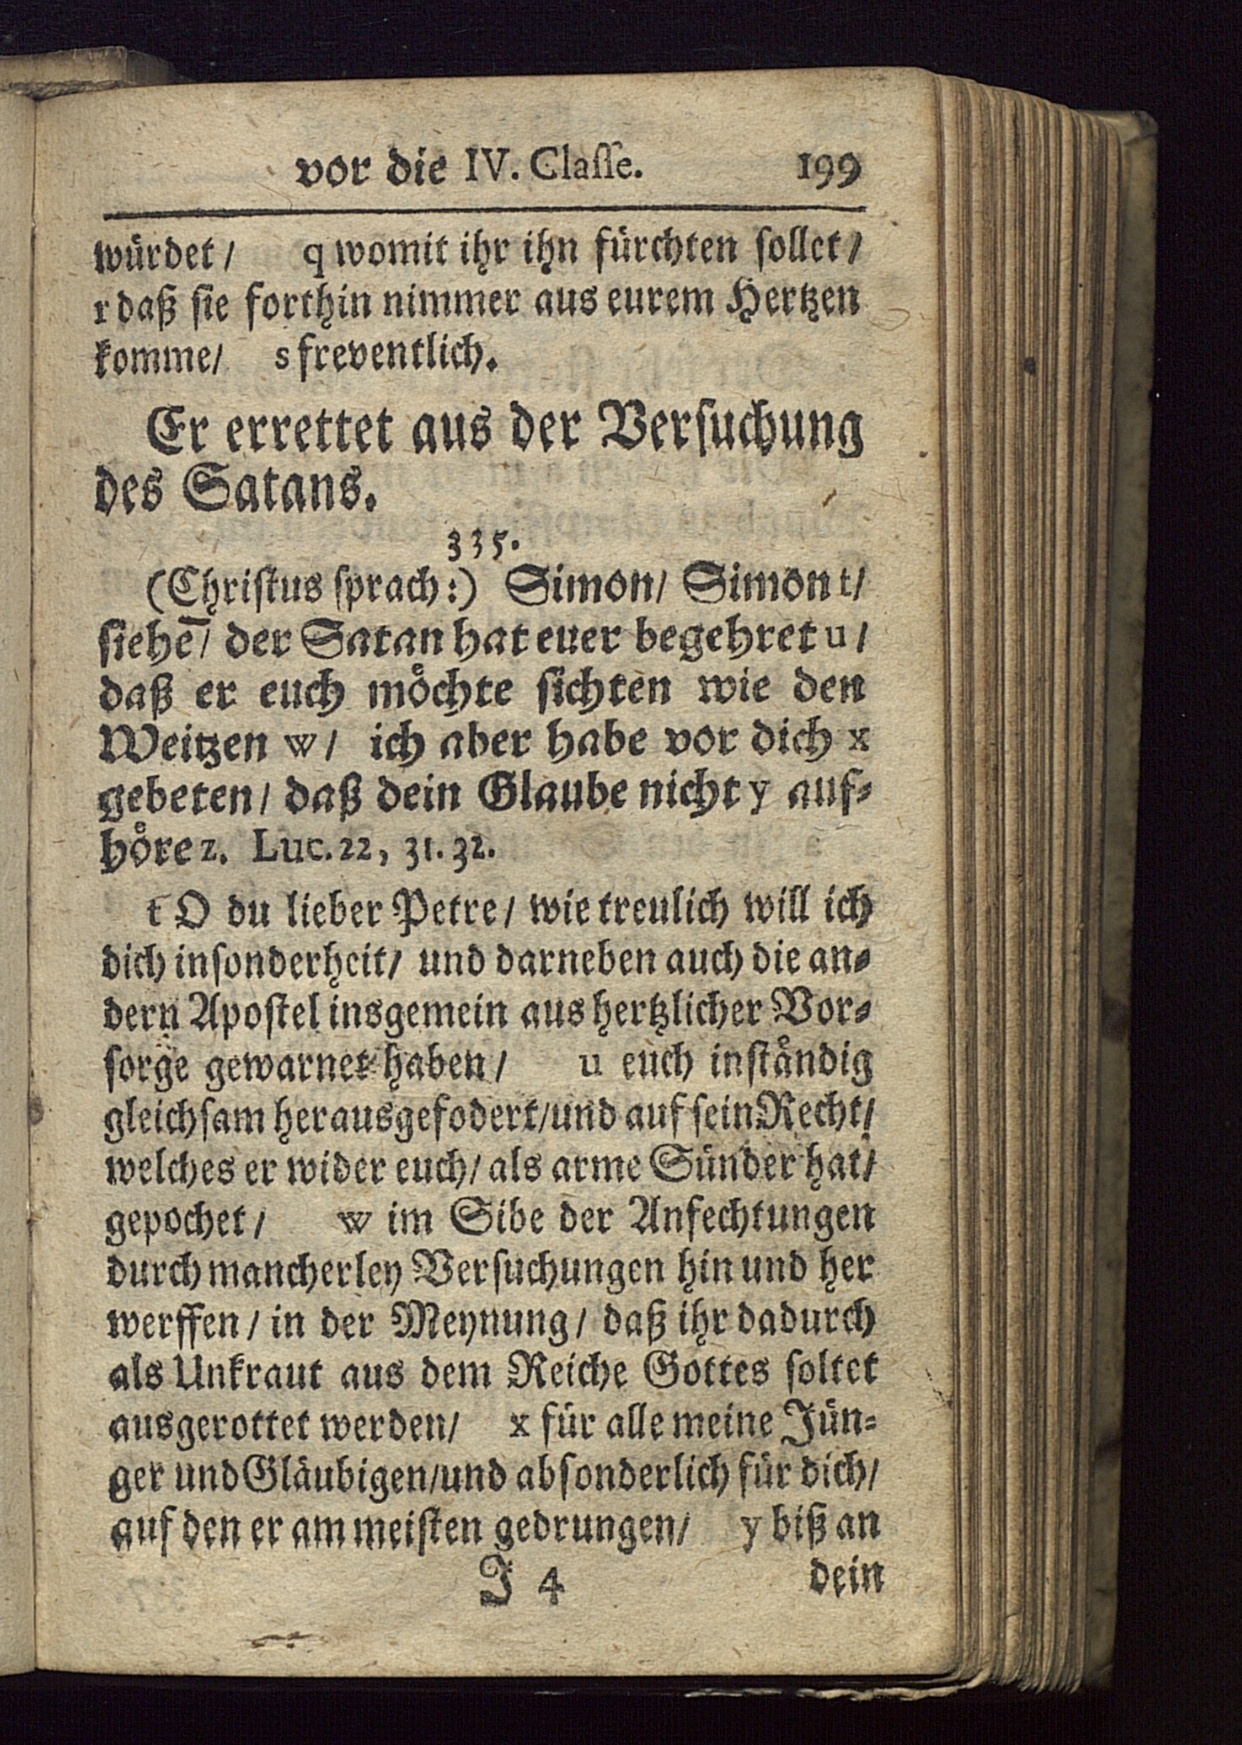 vor die IV. Claſſe. 199
würdet / q womit ihr ihn fürchten ſollet /
r daß ſie forthin nimmer aus eurem Hertzen
komme / s freventlich.
Er errettet aus der Verſuchung
des Satans.
335.
(Chriſtus ſprach:) Simon / Simon t /
ſiehē / der Satan hat euer begehret u /
daß er euch moͤchte ſichten wie den
Weitzen w / ich aber habe vor dich x
gebeten / daß dein Glaube nicht y auf⸗
hoͤre z. Luc. 22, 31. 32.
t O du lieber Petre / wie treulich will ich
dich inſonderheit / und darneben auch die an⸗
dern Apoſtel insgemein aus hertzlicher Vor⸗
ſorge gewarnet haben / u euch inſtaͤndig
gleichſam herausgefodert / und auf ſein Recht /
welches er wider euch / als arme Sünder hat /
gepochet / w im Sibe der Anfechtungen
durch mancherley Verſuchungen hin und her
werffen / in der Meynung / daß ihr dadurch
als Unkraut aus dem Reiche Gottes ſoltet
ausgerottet werden / x für alle meine Jün⸗
ger und Gläubigen / und abſonderlich für dich /
auf den er am meiſten gedrungen / y biß an
J 4 dein